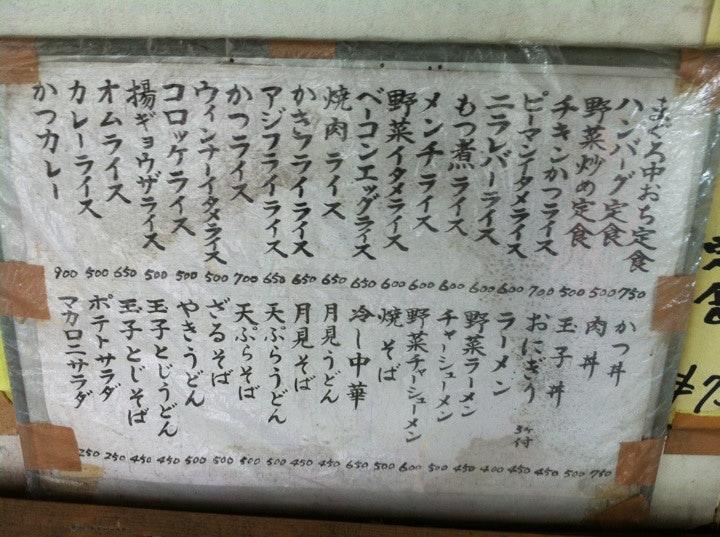 まぐろ中おち定食 750
ハンバーグ定食 500
野菜炒め定食 500
チキンかつライス 700
ピーマンイタメライス 600
ニラレバーライス 600
もつ煮ライス 600
メンチライス 600
野菜イタメライス 600
ベーコンエッグライス 650
焼肉ライス 650
かきフライライス 650
アジフライライス 650
かつライス 700
ウィンナーイタメライス 500
コロッケライス 500
揚ギョウザライス 500
オムライス 650
カレーライス 500
かつカレー 900
かつ丼 750
肉丼 500
玉子丼 450
おにぎり 3ケ付 450
ラーメン 400
野菜ラーメン 450
チャーシューメン 500
野菜チャーシューメン 600
焼そば 500
冷し中華 650
月見うどん 450
月見そば 450
天ぷらうどん 500
天ぷらそば 500
ざるそば 500
やきうどん 500
玉子とじうどん 450
玉子とじそば 450
ポテトサラダ 250
マカロニサラダ 250